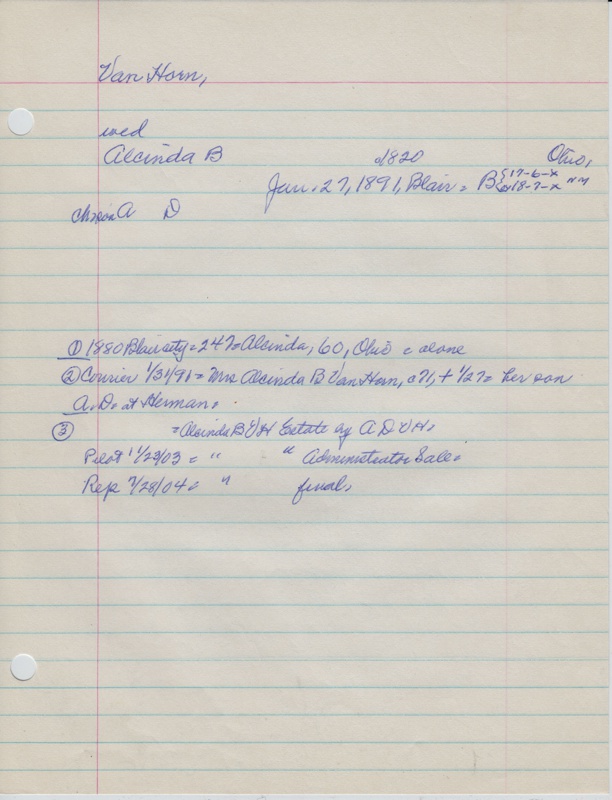 Van Horn,
wed
Alcinda B c1820 Ohio,
Jan. 27, 1891, Blair = B {17-6-x
or 18-7-x NM
A D
① 1880 Blair city = 247 = Alcinda, 60, Ohio = alone
② Courier 1/31/91 = Mrs Alcinda B Van Horn, c71, + 1/27 = her son
A.D. at Herman.
③ = Alcinda B VH Estate by A D VH.
Pilot 11/23/03 = " " Administrator Sale =
Rep 7/28/04 = " final.